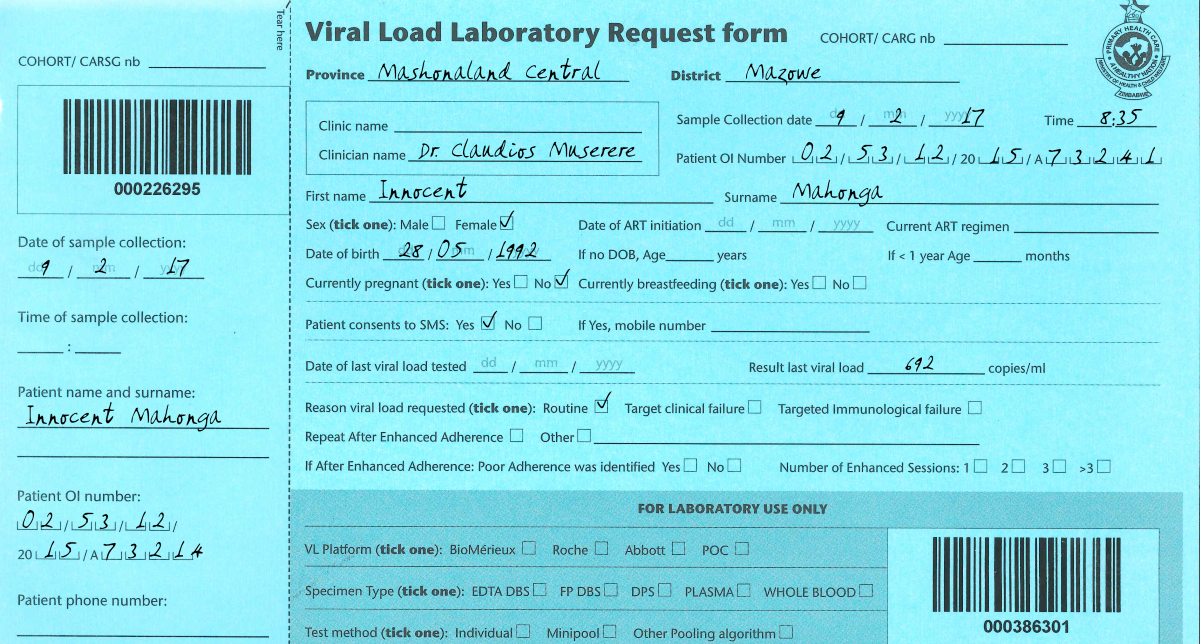 Tear here
COHORT/ CARSG nb
000226295
Date of sample collection:
9 / 2 / 17
Time of sample collection:
:
Patient name and surname:
Innocent Mahonga
Patient OI number:
02 / 53 / 12 /
20 15 / A 73214
Patient phone number:
Viral Load Laboratory Request form COHORT/ CARG nb
PRIMARY HEALTH CARE
A HEALTHY NATION
MINISTRY OF HEALTH & CHILD WELFARE
ZIMBABWE
Province Mashonaland Central District Mazowe
Clinic name
Clinician name Dr. Claudios Muserere
Sample Collection date 9 / 2 / 17 Time 8:35
Patient OI Number 02 / 53 / 12 / 20 15 / A 73241
First name Innocent Surname Mahonga
Sex (tick one): Male ☐ Female ☑ Date of ART initiation dd / mm / yyyy Current ART regimen
Date of birth 28 / 05 / 1992 If no DOB, Age years If < 1 year Age months
Currently pregnant (tick one): Yes ☐ No ☑ Currently breastfeeding (tick one): Yes ☐ No ☐
Patient consents to SMS: Yes ☑ No ☐ If Yes, mobile number
Date of last viral load tested dd / mm / yyyy Result last viral load 692 copies/ml
Reason viral load requested (tick one): Routine ☑ Target clinical failure ☐ Targeted Immunological failure ☐
Repeat After Enhanced Adherence ☐ Other ☐
If After Enhanced Adherence: Poor Adherence was identified Yes ☐ No ☐ Number of Enhanced Sessions: 1 ☐ 2 ☐ 3 ☐ >3 ☐
FOR LABORATORY USE ONLY
VL Platform (tick one): BioMérieux ☐ Roche ☐ Abbott ☐ POC ☐
Specimen Type (tick one): EDTA DBS ☐ FP DBS ☐ DPS ☐ PLASMA ☐ WHOLE BLOOD ☐
Test method (tick one): Individual ☐ Minipool ☐ Other Pooling algorithm ☐
000386301